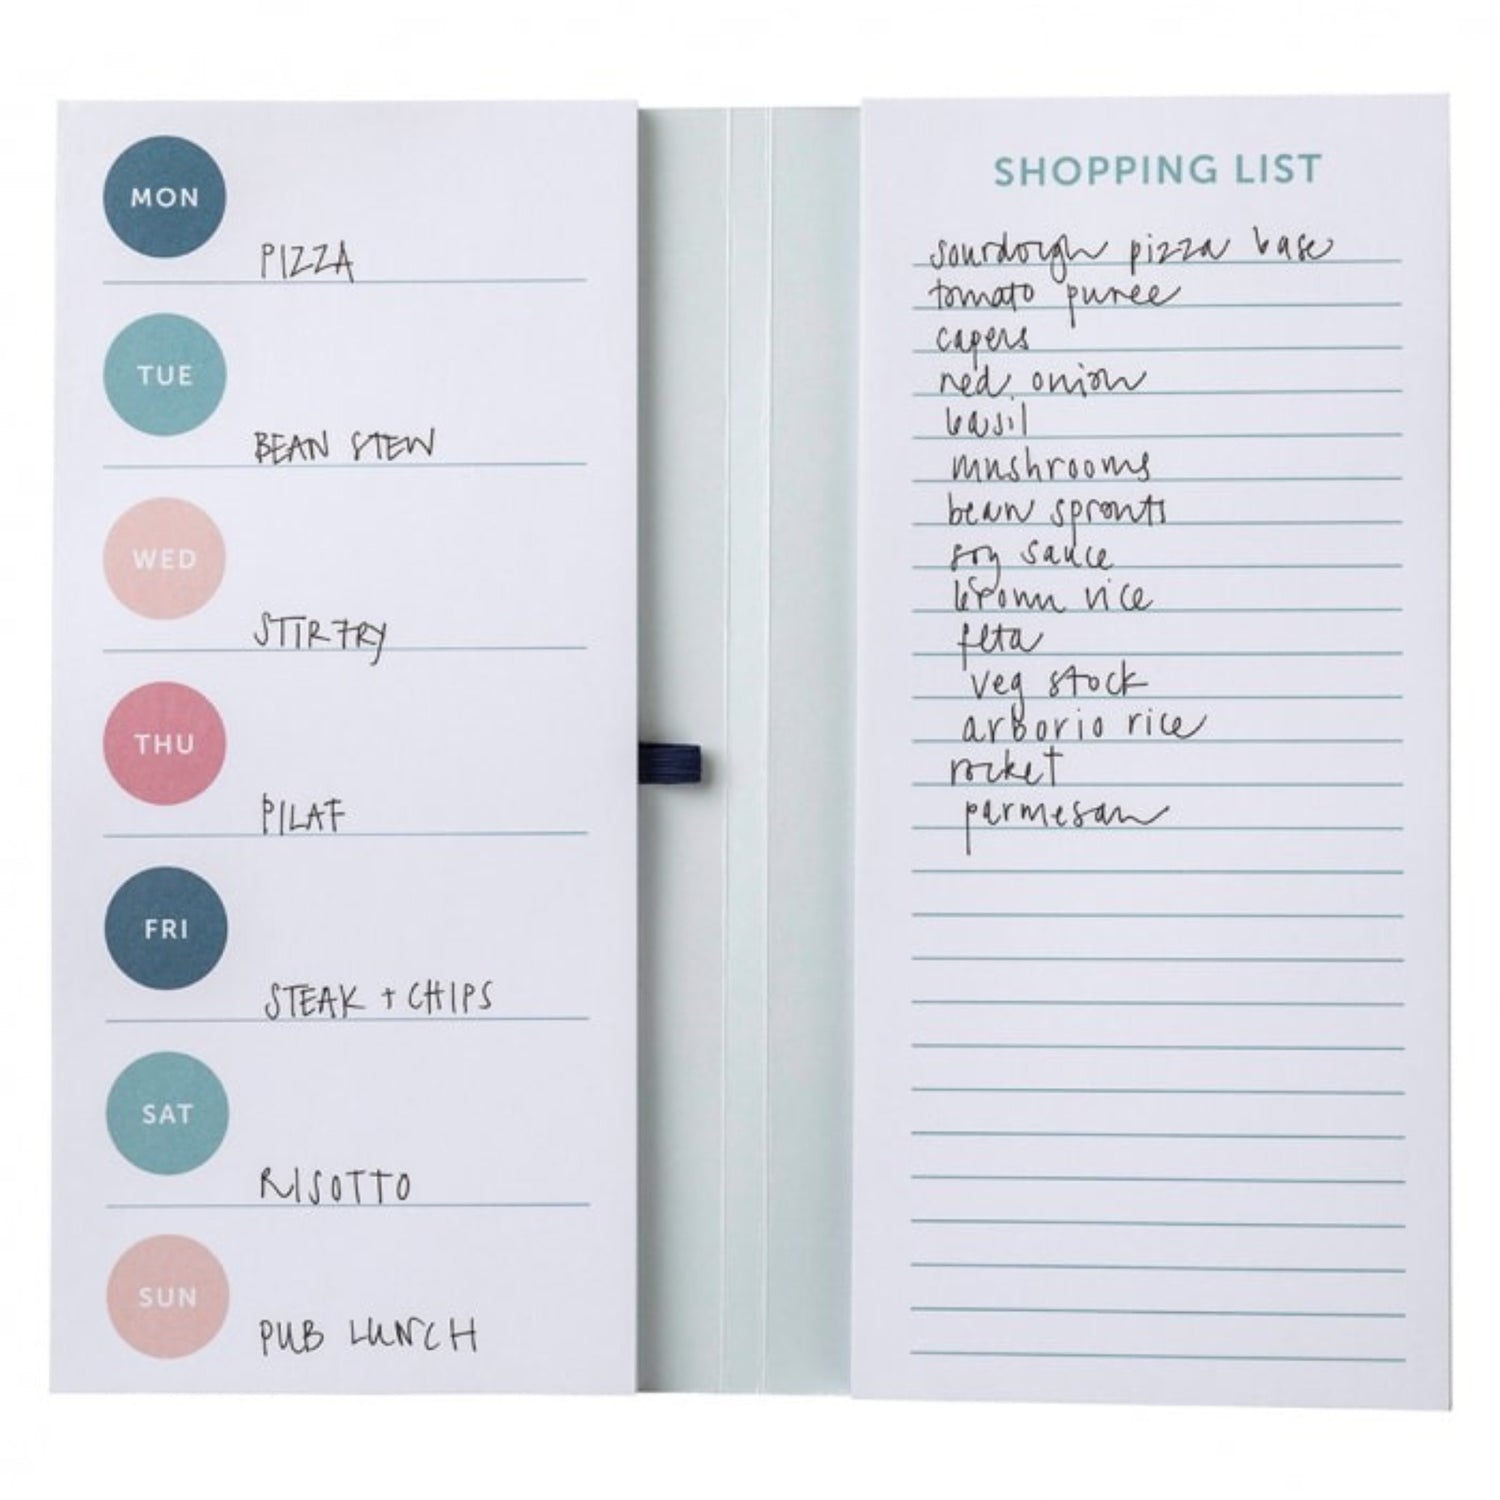 MON
PIZZA
TUE
BEAN STEW
WED
STIR FRY
THU
PILAF
FRI
STEAK + CHIPS
SAT
RISOTTO
SUN
PUB LUNCH
SHOPPING LIST
sourdough pizza base
tomato puree
capers
red onion
basil
mushrooms
bean sprouts
soy sauce
brown rice
feta
veg stock
arborio rice
rocket
parmesan